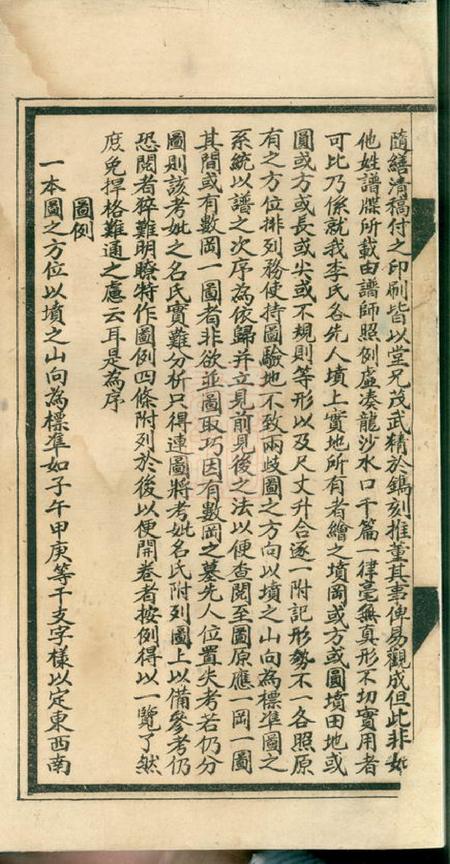 隨繕清稿付之印刷皆以堂兄茂武精於鐫刻推董其事俾易觀成但此非如
他姓譜牒所載由譜師照例虛湊龍沙水口千篇一律毫無真形不切實用者
可比乃係就我李氏各先人墳上實地所有者繪之墳岡或方或圓墳田地或
圓或方或長或尖或不規則等形以及尺丈升合逐一附記形勢不一各照原
有之方位排列務使持圖驗地不致兩歧圖之方向以墳之山向為標準圖之
系統以譜之次序為依歸并立見前見後之法以便查閱至圖原應一岡一圖
其間或有數岡一圖者非欲並圖取巧因有數岡之墓先人位置失考若仍分
圖則該考妣之名氏實難分析只得連圖將考妣名氏附列圖上以備參考仍
恐閱者猝難明瞭特作圖例四條附列於後以便開卷者按例得以一覽了然
庶免捍格難通之慮云耳是為序
圖例
一本圖之方位以墳之山向為標準如子午甲庚等干支字樣以定東西南